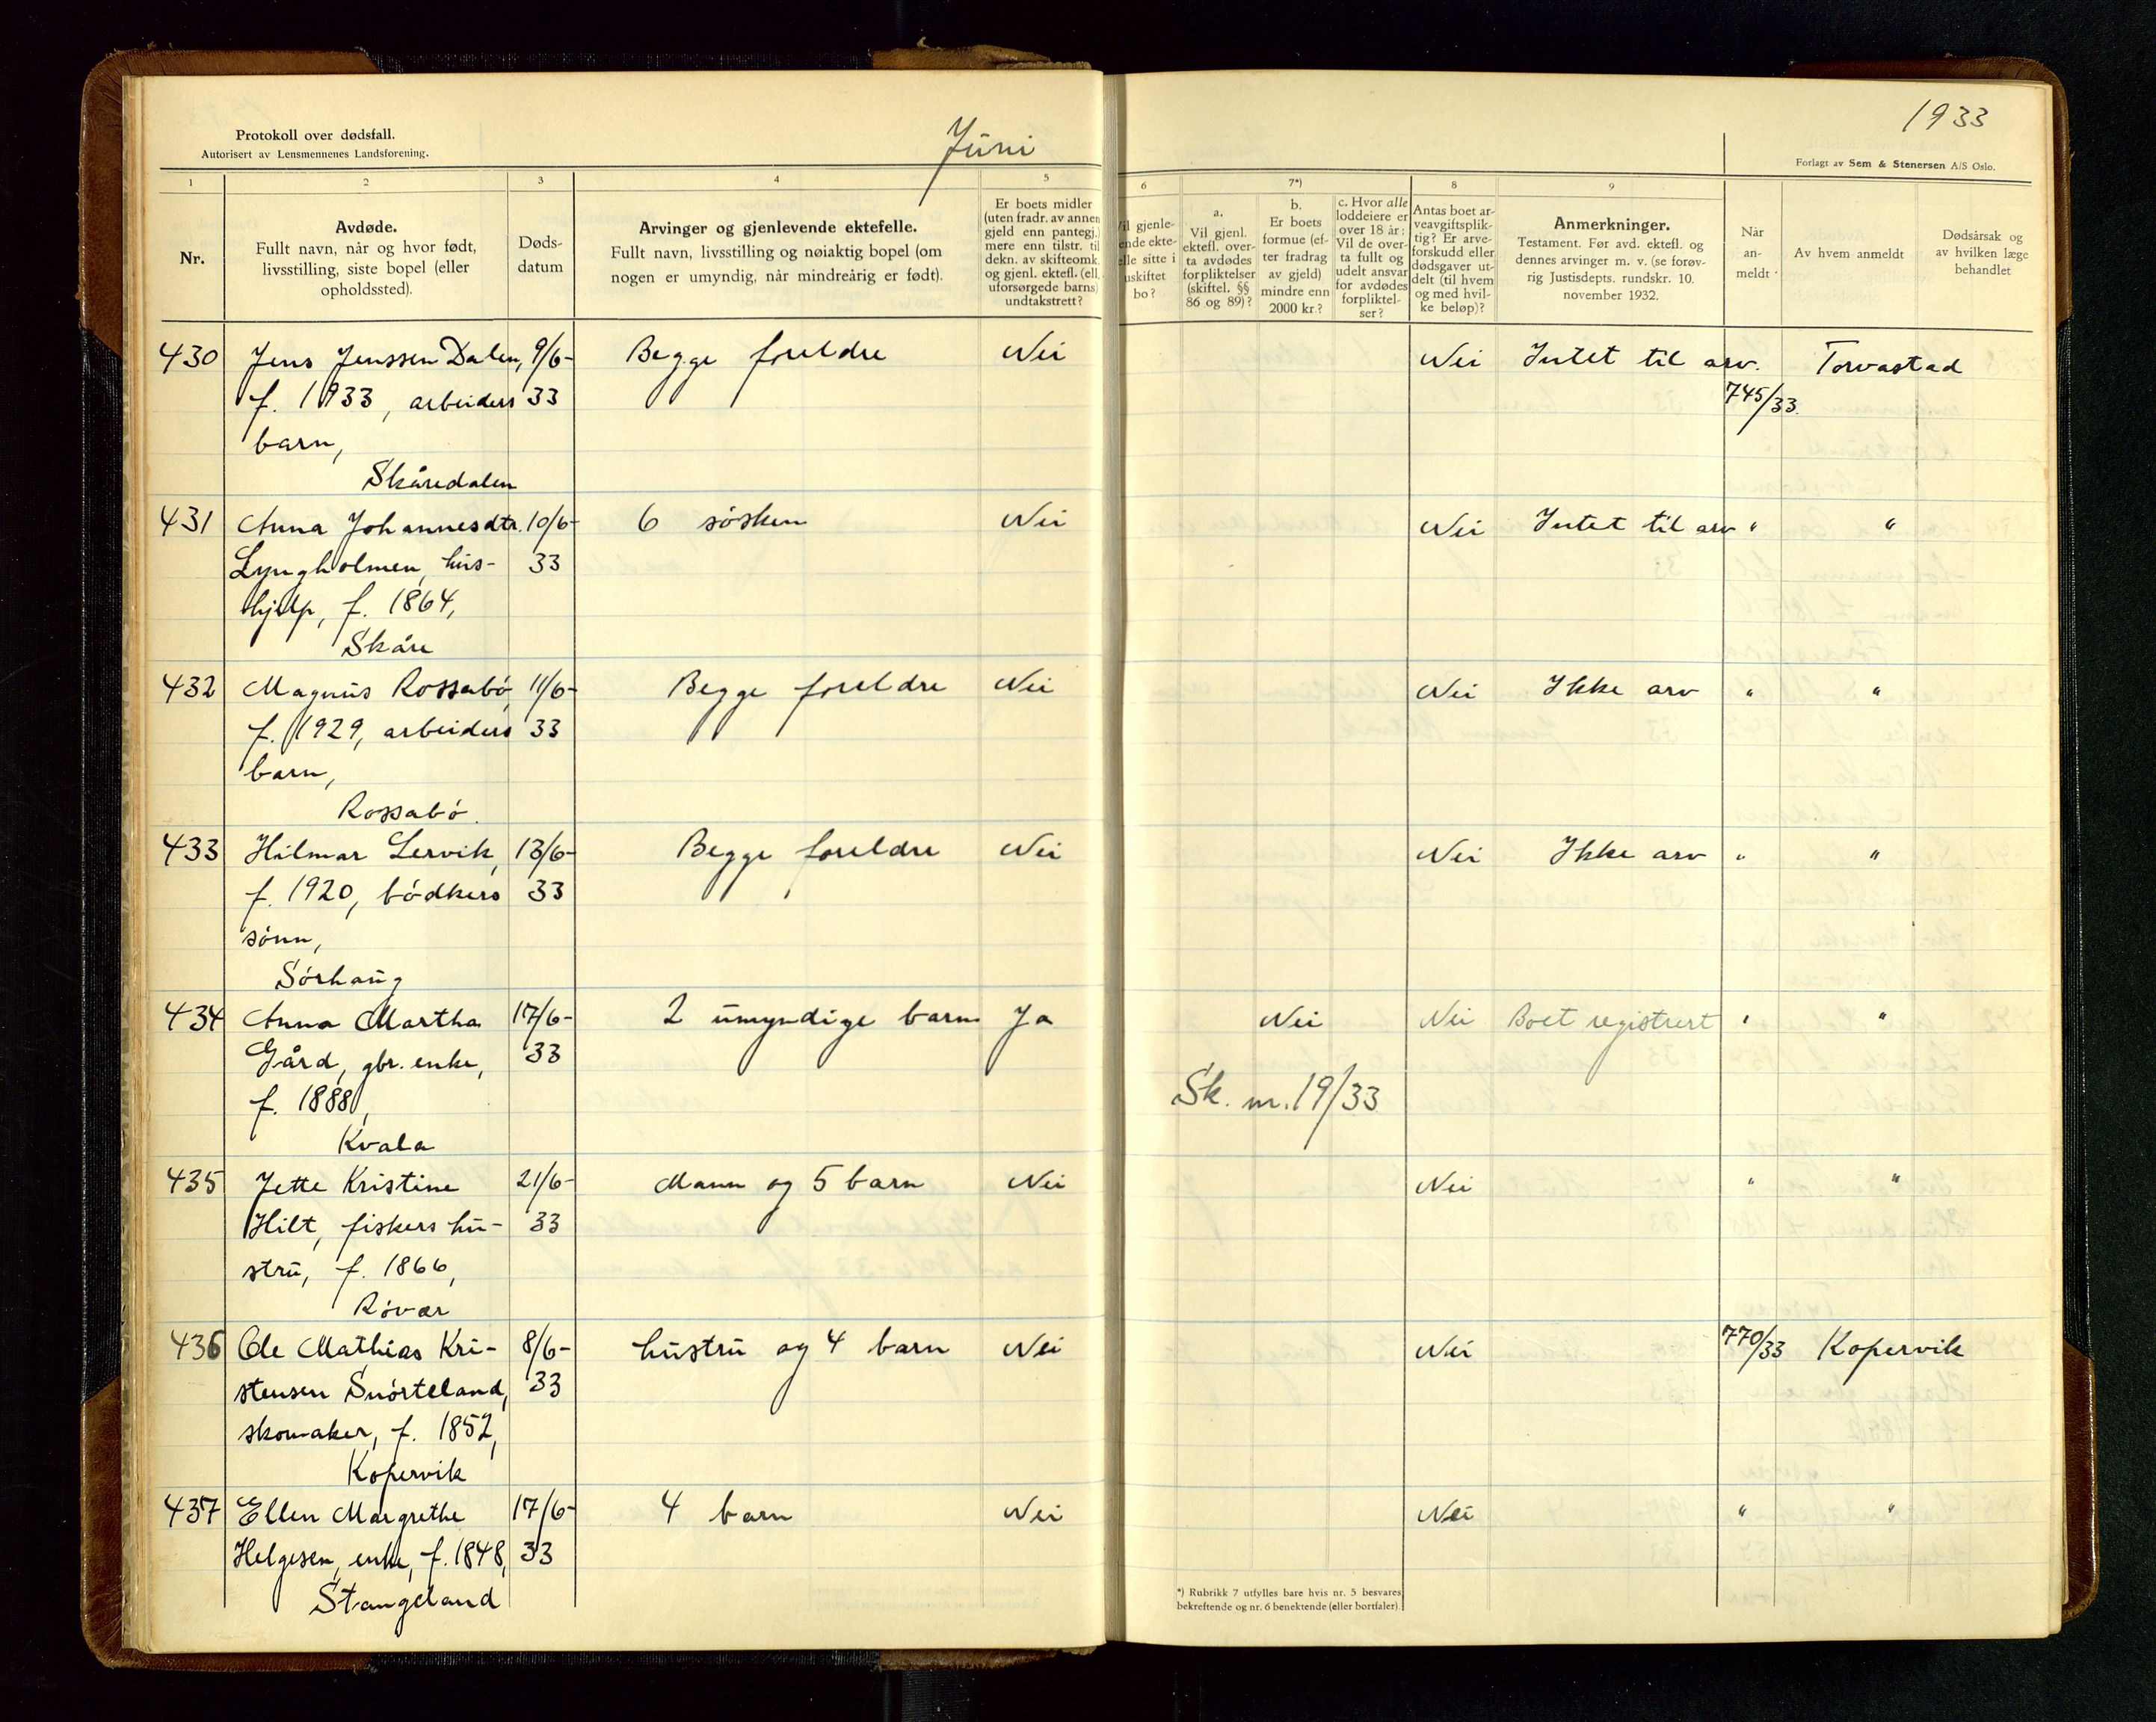 Protokoll over dødsfall.
Autorisert av Lensmennenes Landsforening.
Juni
1933
Forlagt av Sem & Stenersen A/S Oslo.
1
2
3
4
5
6
7*)
8
9
Nr.
Avdøde.
Fullt navn, når og hvor født,
livsstilling, siste bopel (eller
opholdssted).
Døds-
datum
Arvinger og gjenlevende ektefelle.
Fullt navn, livsstilling og nøiaktig bopel (om
nogen er umyndig, når mindreårig er født).
Er boets midler
(uten fradr. av annen
gjeld enn pantegj.)
mere enn tilstr. til
dekn. av skifteomk.
og gjenl. ektefl. (ell.
uforsørgede barns)
undtakstrett?
Vil gjenle-
ende ekte-
elle sitte i
uskiftet
bo?
a.
Vil gjenl.
ektefl. over-
ta avdødes
forpliktelser
(skiftel. §§
86 og 89)?
b.
Er boets
formue (ef-
ter fradrag
av gjeld)
mindre enn
2000 kr.?
c. Hvor alle
loddeiere er
over 18 år:
Vil de over-
ta fullt og
udelt ansvar
for avdødes
forpliktel-
ser?
Antas boet ar-
veavgiftsplik-
tig? Er arve-
forskudd eller
dødsgaver ut-
delt (til hvem
og med hvil-
ke beløp)?
Anmerkninger.
Testament. Før avd. ektefl. og
dennes arvinger m. v. (se forøv-
rig Justisdepts. rundskr. 10.
november 1932.
Når
an-
meldt
Av hvem anmeldt
Dødsårsak og
av hvilken læge
behandlet
430 Jens Jenssen Dalen, 9/6- Begge foreldre Nei Nei Intet til arv. Torvastad
f. 1933, arbeiders 33 745/33.
barn,
Skåredalen
431 Anna Johannesdtr. 10/6- 6 søsken Nei Nei Intet til arv " "
Lyngholmen, hus- 33
hjelp, f. 1864,
Skåre
432 Magnus Rossabø, 11/6- Begge foreldre Nei Nei Ikke arv " "
f. 1929, arbeiders 33
barn,
Rossabø.
433 Hilmar Lervik, 13/6- Begge foreldre Nei Nei Ikke arv " "
f. 1920, bødkers 33
sønn,
Sørhaug
434 Anna Martha 17/6- 2 umyndige barn Ja Nei Nei Boet registrert " "
Gård, gbr. enke, 33
f. 1888, Sk. nr. 19/33
Kvala
435 Jette Kristine 21/6- Mann og 5 barn Nei Nei " "
Hilt, fiskers hu- 33
stru, f. 1866,
Røvær
436 Ole Mathias Kri- 8/6- hustru og 4 barn Nei Nei 770/33 Kopervik
stensen Snørteland, 33
skomaker, f. 1852,
Kopervik
437 Ellen Margrethe 17/6- 4 barn Nei Nei " "
Helgesen, enke, f. 1848, 33
Stangeland
*) Rubrikk 7 utfylles bare hvis nr. 5 besvares
bekreftende og nr. 6 benektende (eller bortfaler).